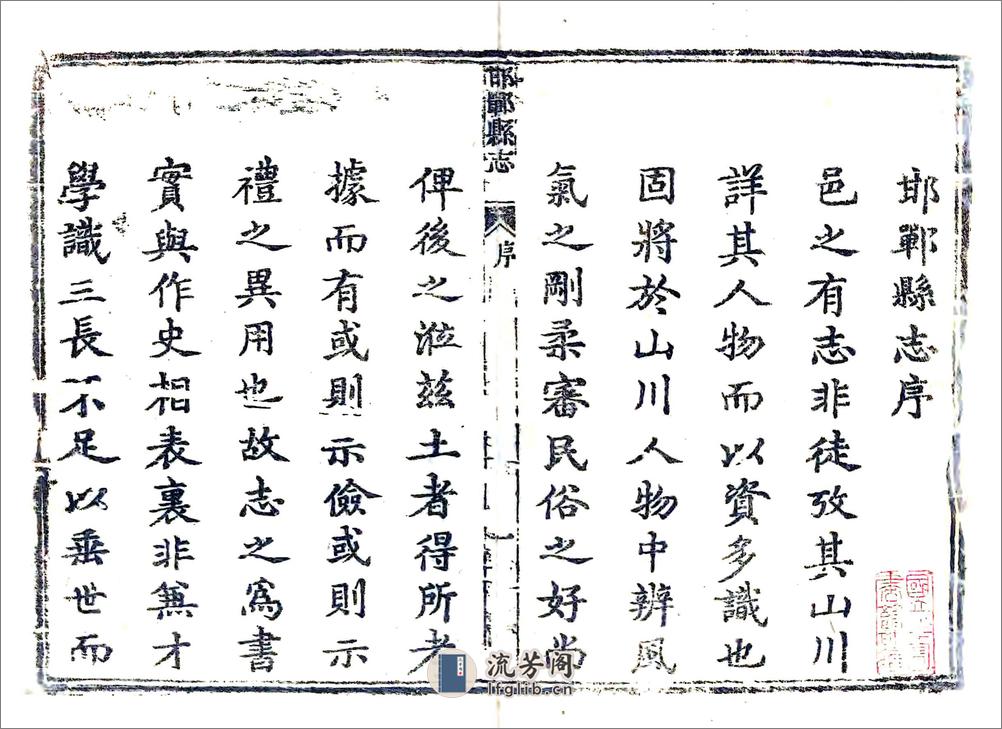 邯鄲縣志序
邑之有志非徒攷其山川
詳其人物而以資多識也
固將於山川人物中辨風
氣之剛柔審民俗之好尚
邯鄲縣志
序
俾後之涖茲土者得所考
據而有或則示儉或則示
禮之異用也故志之爲書
實與作史相表裏非兼才
學識三長不足以垂世而
流芳阁
lfglib.cn